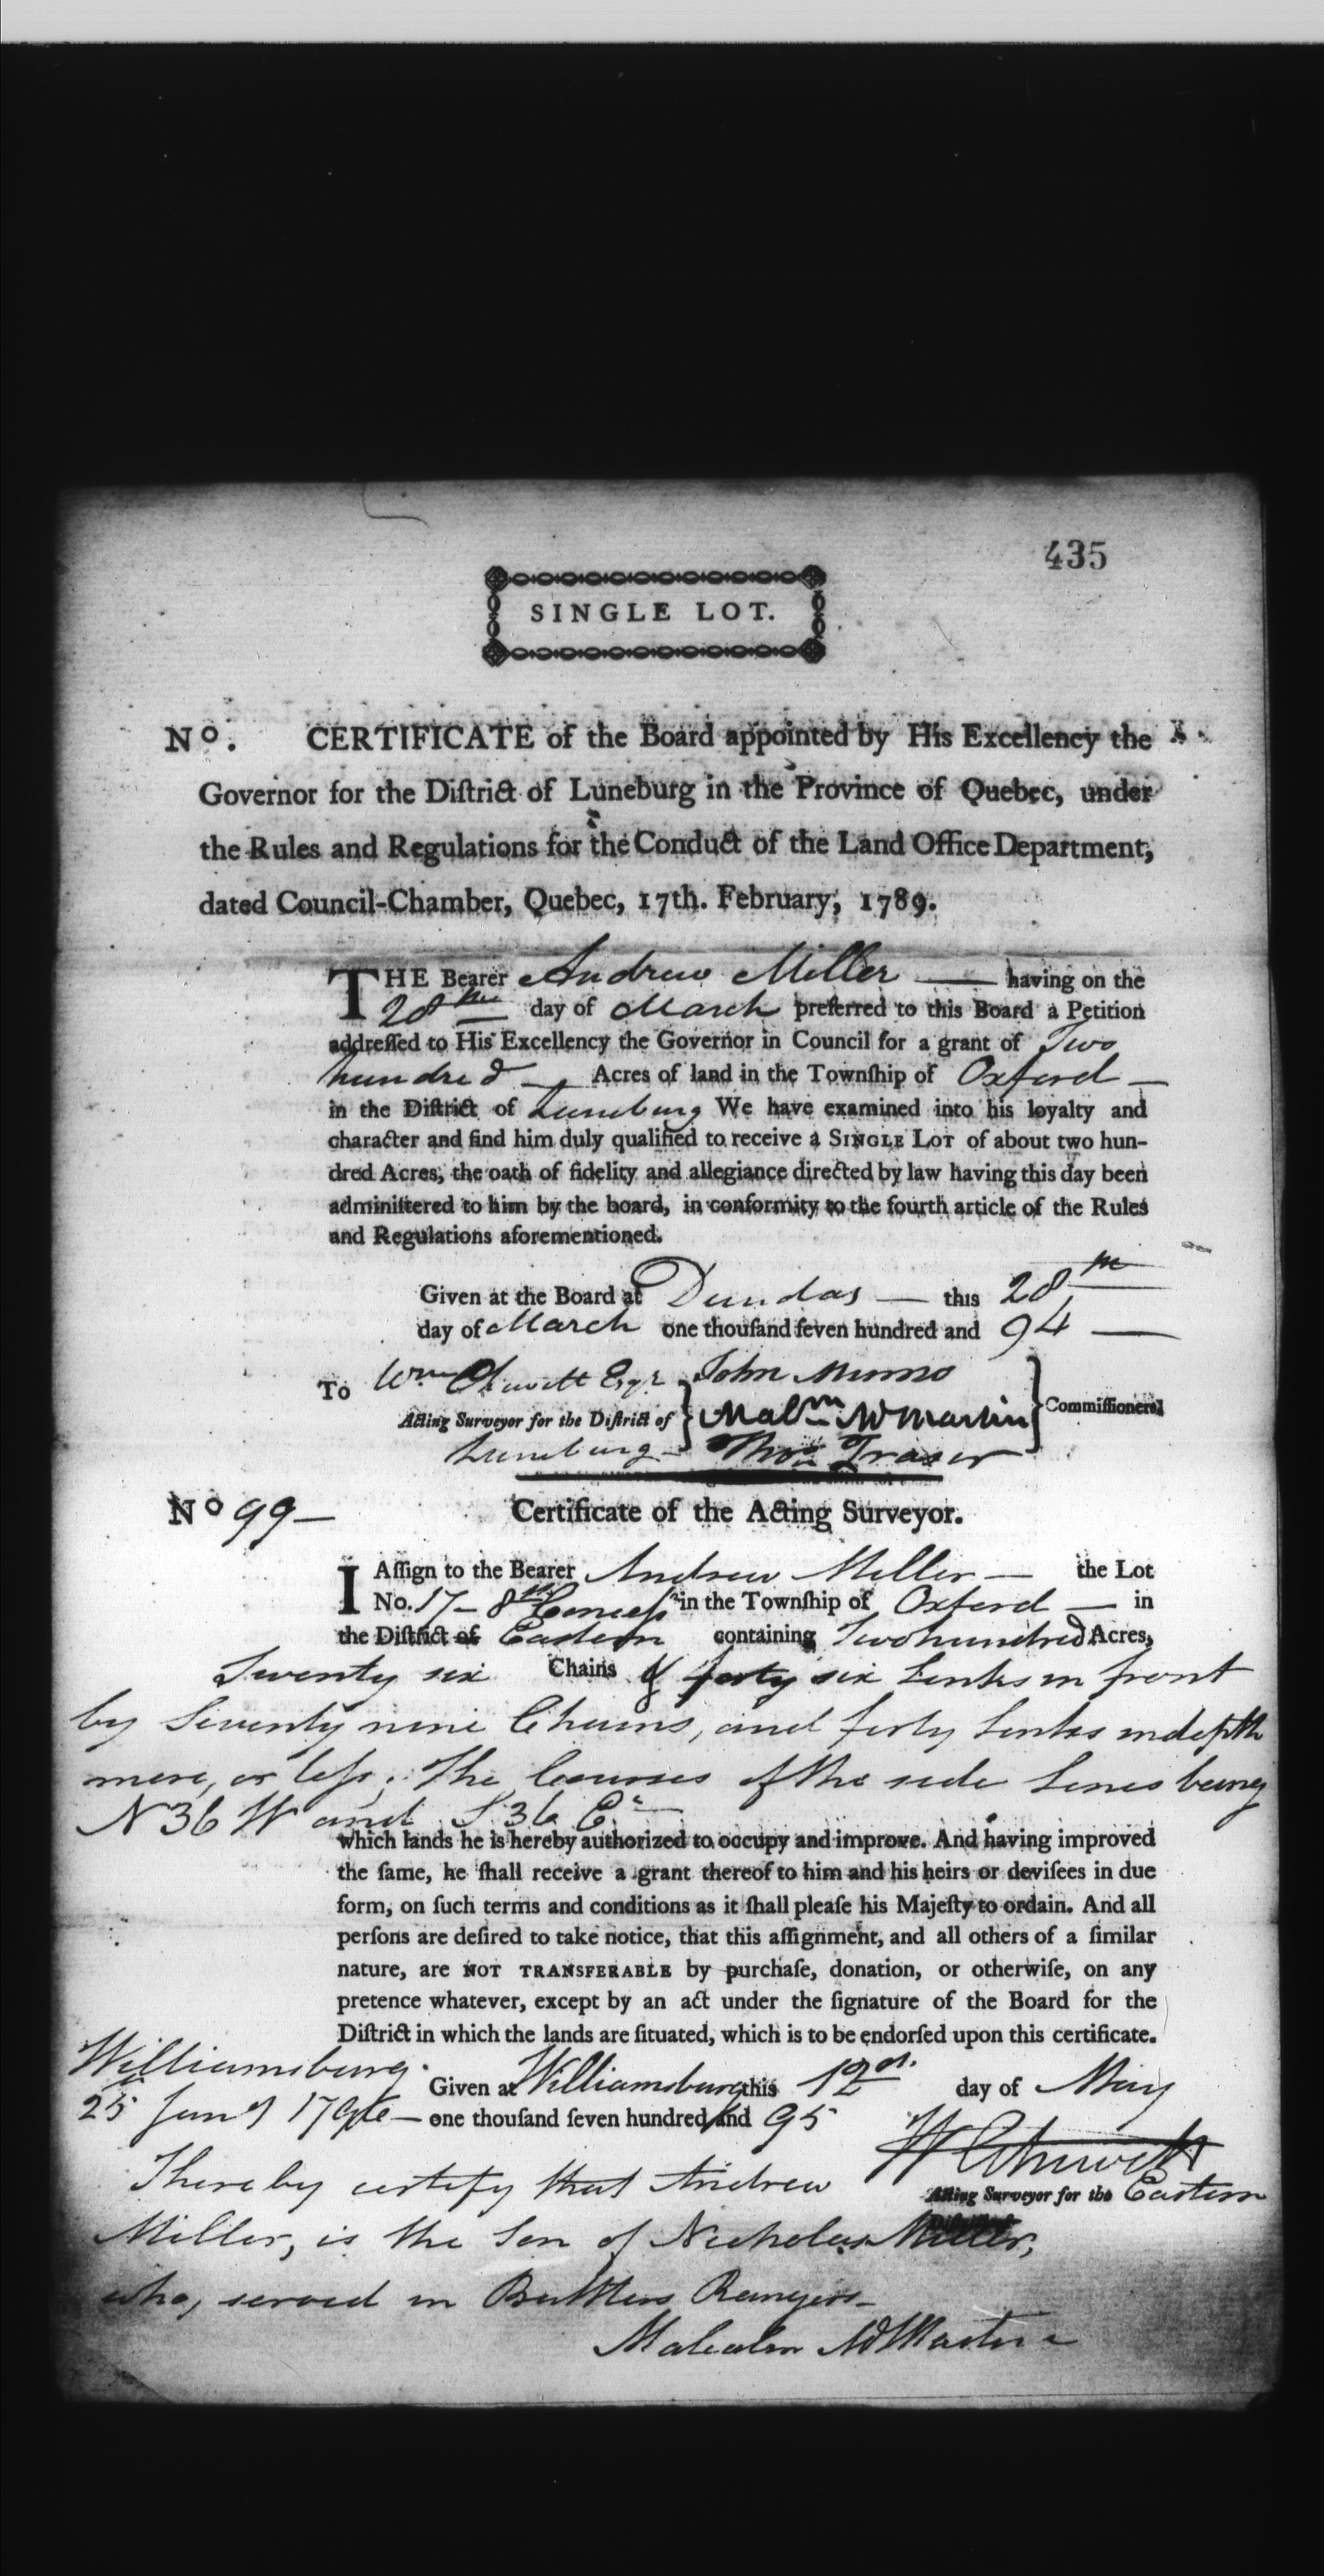 435
SINGLE LOT.
No. CERTIFICATE of the Board appointed by His Excellency the
Governor for the Diſtrict of Luneburg in the Province of Quebec, under
the Rules and Regulations for the Conduct of the Land Office Department,
dated Council-Chamber, Quebec, 17th. February, 1789.
THE Bearer Andrew Miller — having on the
28th day of March preferred to this Board a Petition
addreſſed to His Excellency the Governor in Council for a grant of Two
hundred — Acres of land in the Townſhip of Oxford —
in the Diſtrict of Luneburg We have examined into his loyalty and
character and find him duly qualified to receive a SINGLE LOT of about two hun-
dred Acres, the oath of fidelity and allegiance directed by law having this day been
adminiſtered to him by the board, in conformity to the fourth article of the Rules
and Regulations aforementioned.
Given at the Board at Dundas — this 28th
day of March one thouſand ſeven hundred and 94 —
To Wm Chewett Esqr John Munro
Acting Surveyor for the Diſtrict of Malm McMartin Commiſſioners
Luneburg — Thos Fraser
No 99 — Certificate of the Acting Surveyor.
I Aſſign to the Bearer Andrew Miller — the Lot
No. 17 — 8th Conceſsn in the Townſhip of Oxford — in
the Diſtrict of Eastern containing Two hundred Acres,
Twenty six Chains & forty six Links in front
by Seventy nine Chains, and forty Links in depth
more, or leſs, The Courses of the side Lines being
N 36 W and S 36 E
which lands he is hereby authorized to occupy and improve. And having improved
the ſame, he ſhall receive a grant thereof to him and his heirs or deviſees in due
form, on ſuch terms and conditions as it ſhall pleaſe his Majeſty to ordain. And all
perſons are deſired to take notice, that this aſſignment, and all others of a ſimilar
nature, are NOT TRANSFERABLE by purchaſe, donation, or otherwiſe, on any
pretence whatever, except by an act under the ſignature of the Board for the
Diſtrict in which the lands are ſituated, which is to be endorſed upon this certificate.
Williamsburg
Given at Williamsburg this 12 day of May
25 Jany 1796 — one thouſand ſeven hundred and 95
W Chewett
I hereby certify that Andrew
Acting Surveyor for the Eastern
Miller, is the Son of Nicholas Miller,
who, served in Buttlers Rangers —
Malcolm McMartin